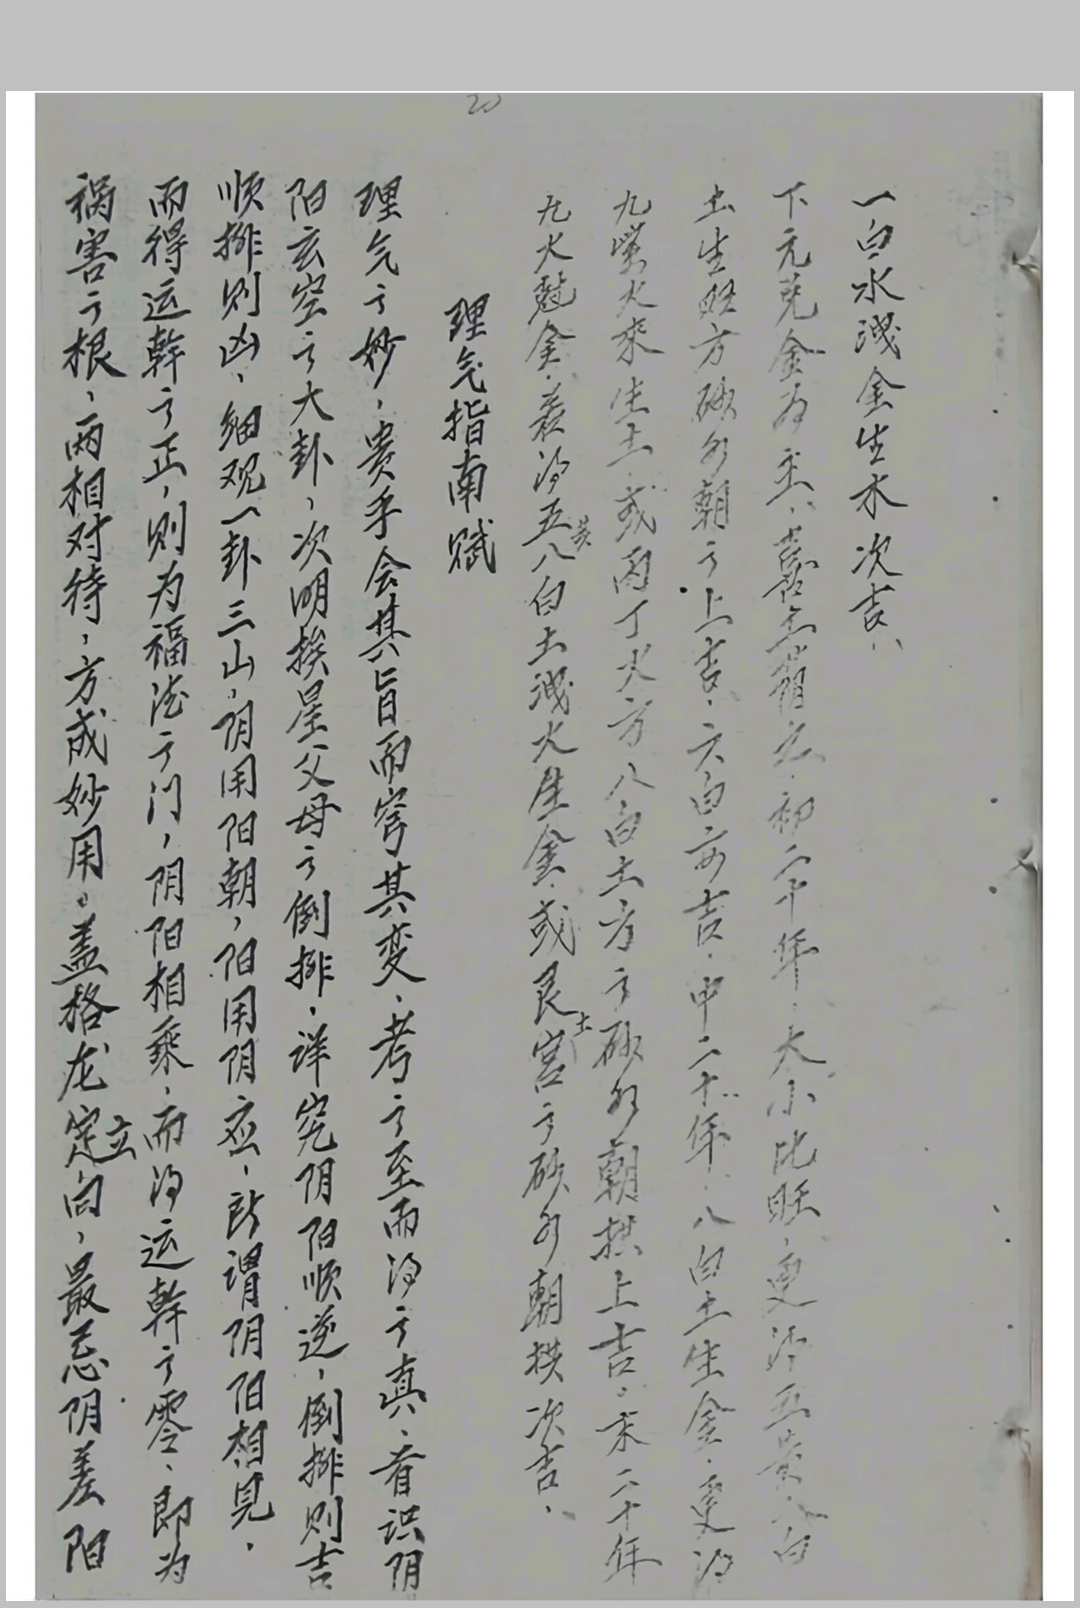 20
一白水洩金生水次吉、
下元兑金为主、喜土
初二十年、大小比旺、更得五黄八白
土生旺方砂水朝之上吉、六白亦吉、中二十年、八白土生金、更得
九紫火來生土、或丙丁火方八白土方之砂水朝拱上吉、末二十年
九火尅金、若得五黄八白土洩火生金、或艮土宫之砂水朝拱次吉、
理气指南赋
理气之妙，贵乎会其旨而穷其变、考之至而得之真、首识阴
阳玄空之大卦，次明挨星父母之倒排、详究阴阳顺逆，倒排则吉
顺排则凶、细观一卦三山，阴用阳朝，阳用阴应，所谓阴阳相见、
而得运幹之正，则为福德之门，阴阳相乘、而得运幹之零、即为
祸害之根，两相对待，方成妙用。盖格龙定立向，最忌阴差阳